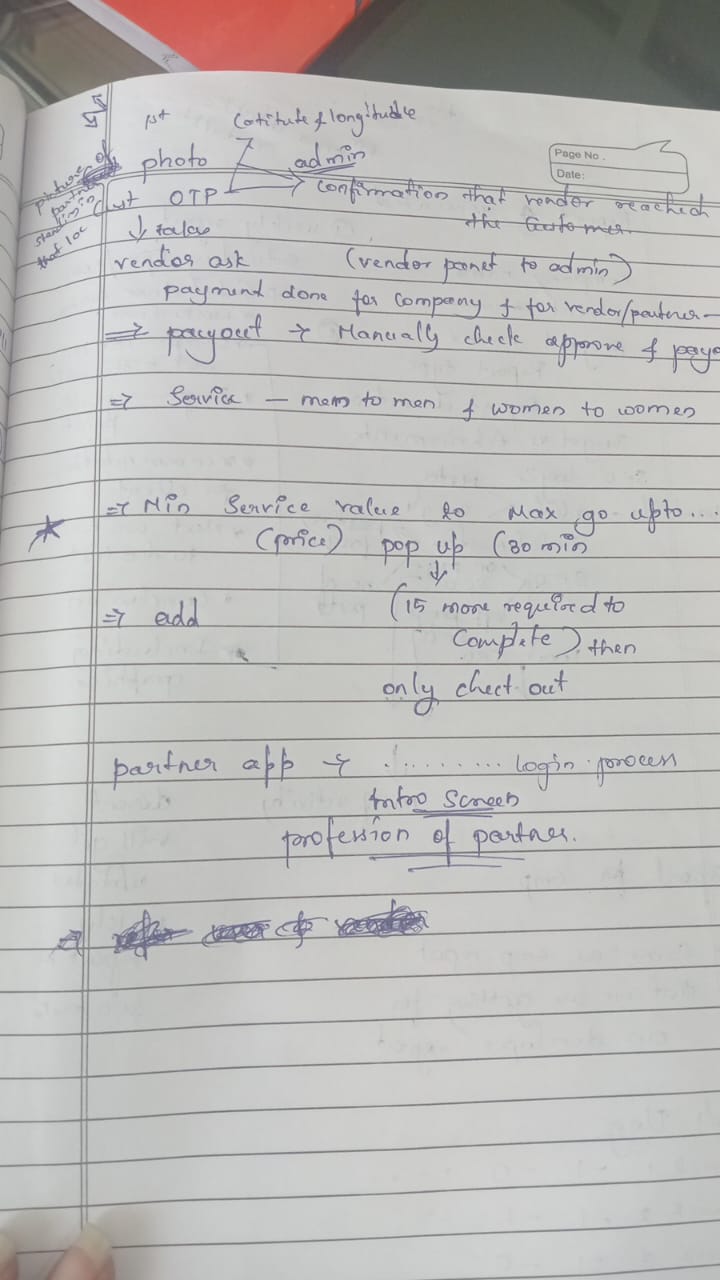 1st latitute & longitudle
photo admin
Page No.
Date:
picture of
partner
standing in
that loc
OTP → confirmation that vendor reached
the customer.
↓
vendor ask (vendor panel to admin)
payment done for company & for vendor/partner —
⇒ payout → Manually check approve &
⇒ Service — mem to men & women to women
⇒ Min Service value to Max go upto...
(price) pop up (30 min
↓
⇒ add (15 more required to
complete) then
only chect out
partner app → .......... login process
Intro Screen
profession of partner.